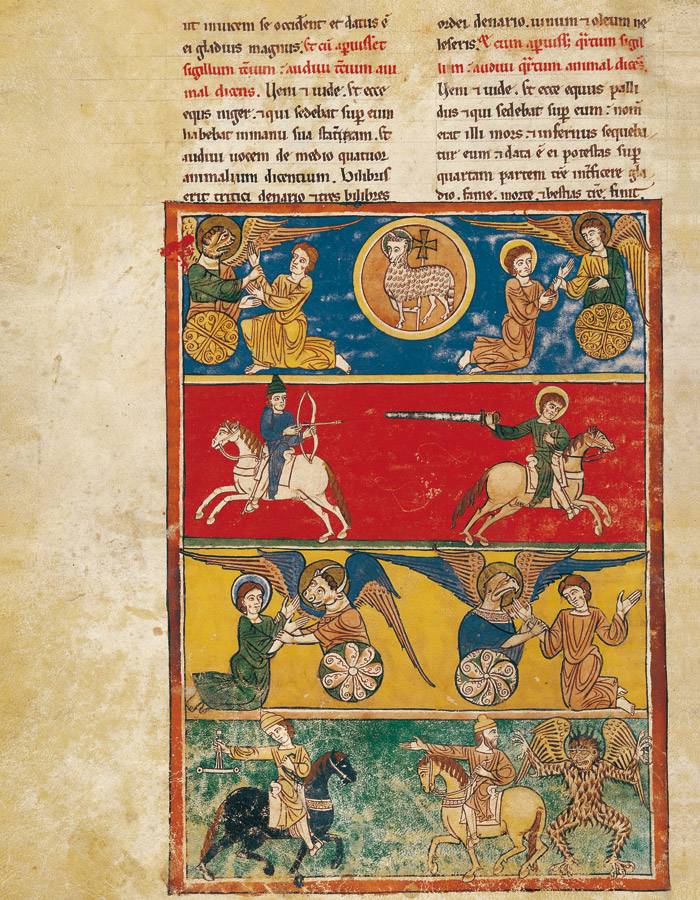 ut inuicem se occident et datus ē
ei gladius magnus. Et cū apuisset
sigillum tcium : audiui tcium ani
mal dicens. Ueni ⁊ uide. Et ecce
equs niger. ⁊ qui sedebat sup eum
habebat inmanu sua Et
audiui uocem de medio quatuor
animalium dicentium. Bilibris
erit tritici denario ⁊ tres bilibres
ordei denario. uinum ⁊ oleum ne
leseris. Et cum apuiss; qrtum sigil
lum : audiui qrtum animal dicēs.
Ueni ⁊ uide. Et ecce equus palli
dus ⁊ qui sedebat sup eum : nom̄
erat illi mors ⁊ infernus sequeba
tur eum ⁊ data ē ei potestas sup
quartam partem tre gla
dio. fame. morte. ⁊ bestias tre. finit.